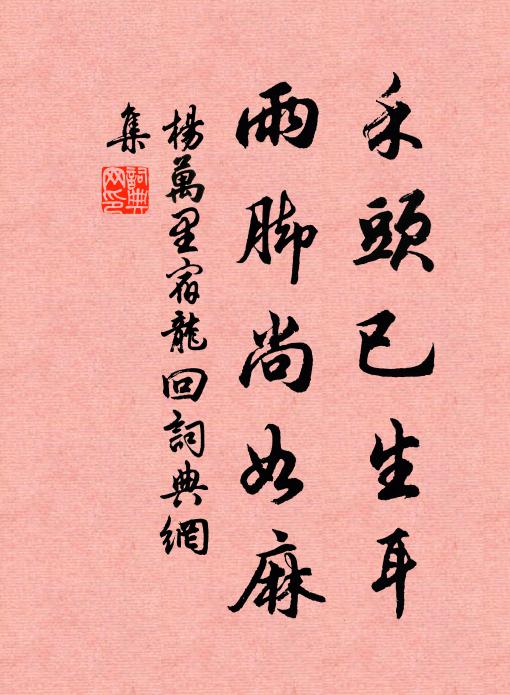 禾頭已生耳
雨脚尚如麻
楊萬里宿龍回詞典網
集
詞典
网印